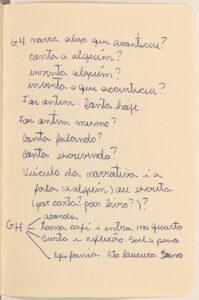 G.H. narra algo que aconteceu?
conta a alguém?
inventa alguém?
inventa o que aconteceu?
Foi ontem. Conta hoje.
Foi ontem mesmo?
Conta falando?
Conta escrevendo?
Veículo da narrativa: é a
fala (a alguém) ou escrita
(por carta? por livro?)?
acorda
GH toma café e entra no quarto
Susto e reflexão
Epifania